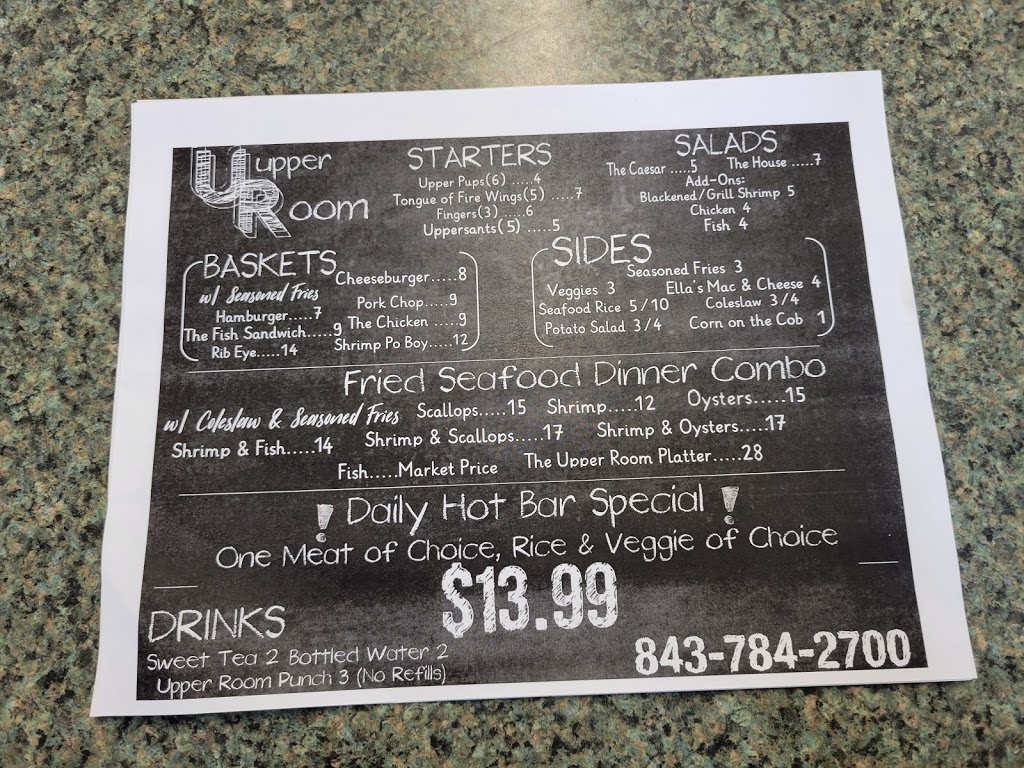 upper
UR oom
STARTERS
Upper Pups(6) .....4
Tongue of Fire Wings(5) .....7
Fingers(3) .....6
Uppersants(5) .....5
SALADS
The Caesar .....5 The House .....7
Add-Ons:
Blackened/Grill Shrimp 5
Chicken 4
Fish 4
BASKETS
w/ Seasoned Fries
Hamburger.....7
The Fish Sandwich.....9
Rib Eye.....14
Cheeseburger.....8
Pork Chop.....9
The Chicken .....9
Shrimp Po Boy.....12
SIDES
Seasoned Fries 3
Veggies 3 Ella's Mac & Cheese 4
Seafood Rice 5/10 Coleslaw 3/4
Potato Salad 3/4 Corn on the Cob 1
Fried Seafood Dinner Combo
w/ Coleslaw & Seasoned Fries Scallops.....15 Shrimp.....12 Oysters.....15
Shrimp & Fish.....14 Shrimp & Scallops.....17 Shrimp & Oysters.....17
Fish.....Market Price The Upper Room Platter.....28
! Daily Hot Bar Special !
One Meat of Choice, Rice & Veggie of Choice
$13.99
DRINKS
Sweet Tea 2 Bottled Water 2
Upper Room Punch 3 (No Refills)
843-784-2700